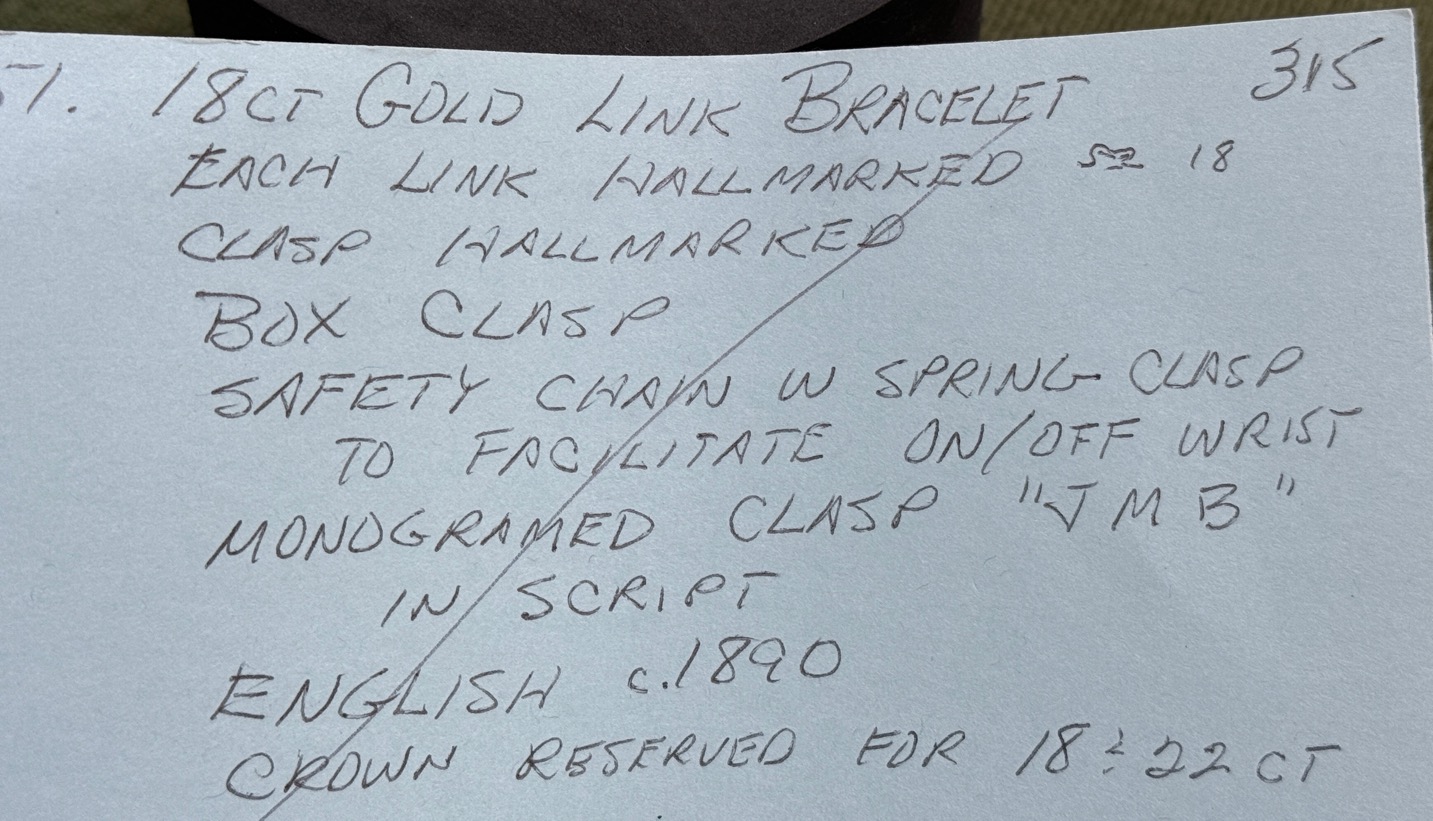 1. 18CT GOLD LINK BRACELET 315
EACH LINK HALLMARKED 18
CLASP HALLMARKED
BOX CLASP
SAFETY CHAIN W SPRING CLASP
TO FACILITATE ON/OFF WRIST
MONOGRAMED CLASP "J M B"
IN SCRIPT
ENGLISH c.1890
CROWN RESERVED FOR 18 & 22 CT